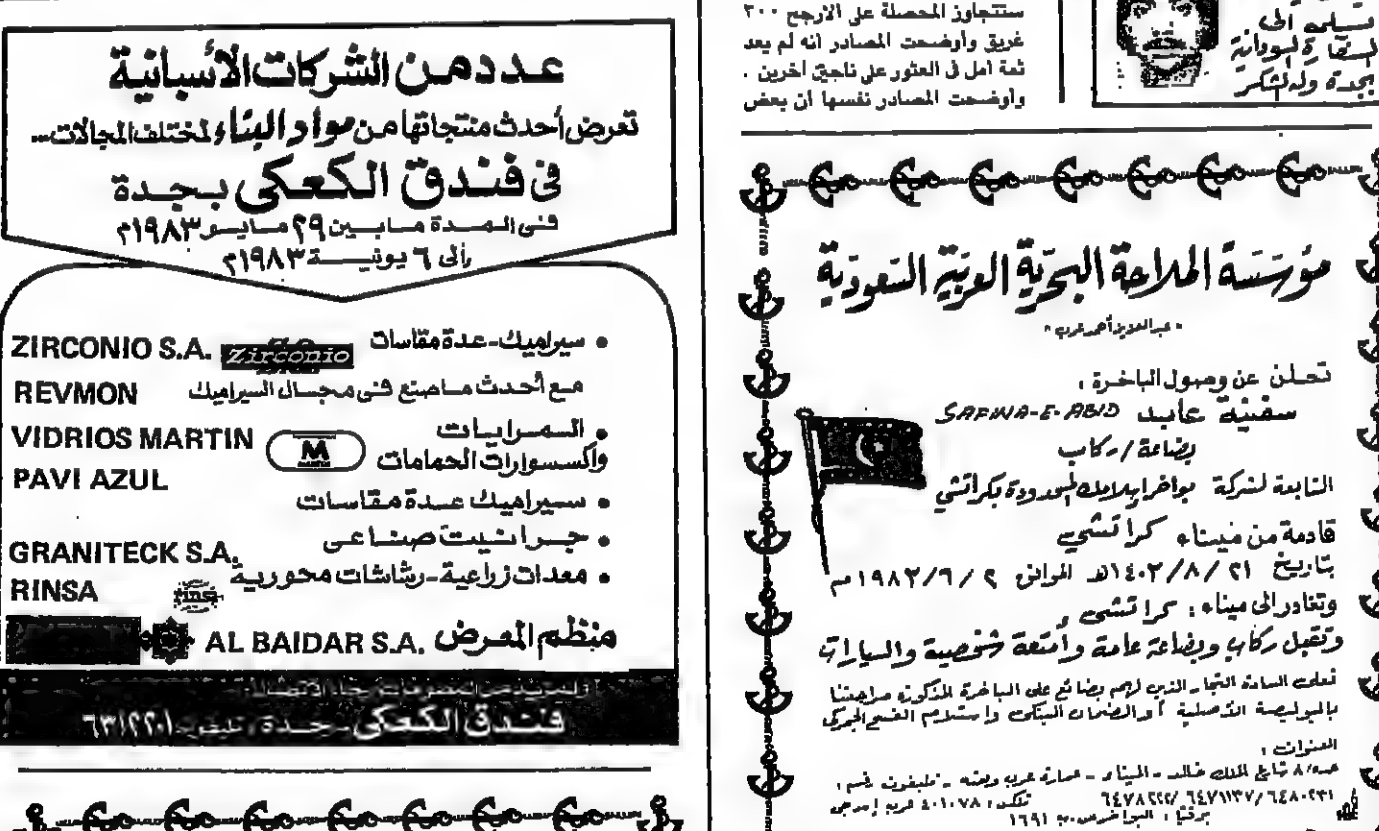 عدد من الشركات الأسبانية
تعرض أحدث منتجاتها من مواد البناء لمختلف المجالات...
في فندق الكعكي بجدة
في المدة مابين ٢٩ مايو ١٩٨٣م
إلى ٦ يونية ١٩٨٣م
ZIRCONIO S.A. Zirconio • سيراميك - عدة مقاسات
REVMON مع أحدث ماصنع في مجال السيراميك
VIDRIOS MARTIN M • المرايات
واكسسوارات الحمامات
PAVI AZUL • سيراميك عدة مقاسات
GRANITECK S.A. • جرانيت صناعي
RINSA rinsa • معدات زراعية - رشاشات محورية
منظم المعرض AL BAIDAR S.A.
وللمزيد من المعلومات رجاء الاتصال
فندق الكعكي - جدة - تليفون ٦٣١٢٢٠١
ستتجاوز المحصلة على الأرجح ٣٠٠
غريق وأوضحت المصادر انه لم يعد
ثمة أمل في العثور على ناجين آخرين .
وأوضحت المصادر نفسها أن بعض
إلى
السودانية
بجدة وله الشكر
مؤسسة الملاحة البحرية العربية السعودية
" عبدالعزيز أحمد عرب "
تعلن عن وصول الباخرة :
سفينة عابد SAFINA-E-ABID
بضاعة / ركاب
التابعة لشركة بواخر المحدودة بكراتشي
قادمة من ميناء كراتشي
بتاريخ ٢١ / ٨ / ١٤٠٣هـ الموافق ٢ / ٦ / ١٩٨٣م
وتغادر الى ميناء : كراتشي
وتقبل ركاب وبضاعة عامة وأمتعة شخصية والسيارات
فعلى السادة التجار الذين لهم بضائع على الباخرة المذكورة مراجعتنا
بالبوليصة الأصلية أو الضمان البنكي واستلام الفسح الجمركي
العنوان :
جدة / ٨ شارع الملك خالد - الميناء - عمارة عرب - تليفون رقم :
٦٤٨٠٢٣١ / ٦٤٧١١٣٧ / ٦٤٧٨٢٢٢ تلكس : ٤٠١٠٧٨ عرب إس جي
برقيا : البواخر ص.ب ١٦٩١